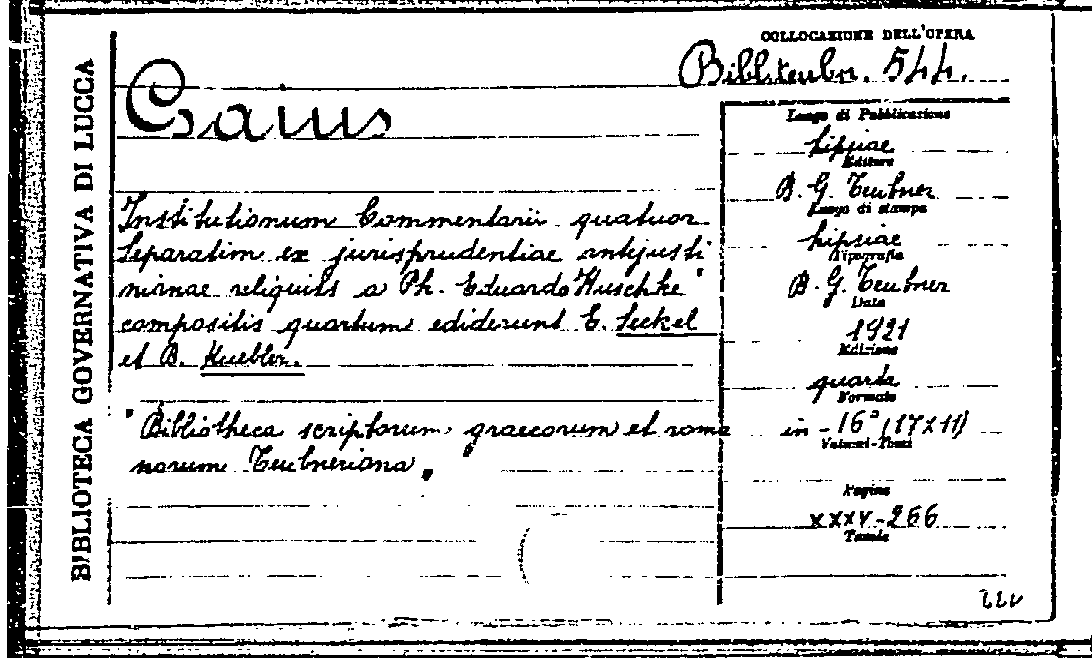 BIBLIOTECA GOVERNATIVA DI LUCCA
COLLOCAZIONE DELL'OPERA
Bibl. teubn. 544.
Gaius
Institutionum Commentarii quatuor
Separatim ex jurisprudentiae antejusti
nianae reliquiis a Ph. Eduardo Huschke
compositis quartum ediderunt E. Seckel
et B. Kuebler.
"Bibliotheca scriptorum graecorum et roma
norum Teubneriana"
Luogo di Pubblicazione
Lipsiae
Editore
B. G. Teubner
Luogo di stampa
Lipsiae
Tipografia
B. G. Teubner
Data
1921
Edizione
quarta
Formato
in-16° (17x11)
Volumi-Tomi
Pagine
XXXV-266
Tavole